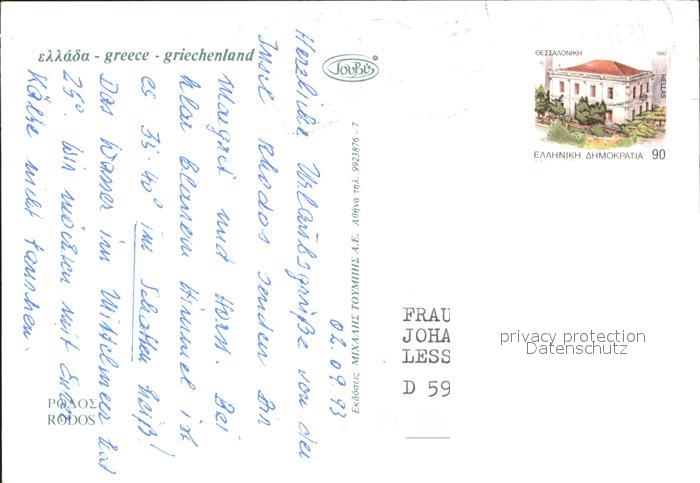 ελλάδα - greece - griechenland
ΡΟΔΟΣ
RODOS
02.09.93
Herzliche Urlaubsgrüße von der
Insel Rhodos senden Dir
Margret und Horst. Bei
klar blauem Himmel ist
es 35-40° im Schatten heiß!
Das Wasser im Mittelmeer hat
25°. Wir möchten mit Eurer
Kälte nicht tauschen.
JouBis
Εκδόσεις ΜΙΧΑΛΗΣ ΤΟΥΜΠΗΣ Α.Ε. Αθήνα τηλ. 9923876 - 7
ΘΕΣΣΑΛΟΝΙΚΗ 1992
HELLAS
ΕΛΛΗΝΙΚΗ ΔΗΜΟΚΡΑΤΙΑ 90
FRAU
JOHA
LESS
D 59
privacy protection
Datenschutz